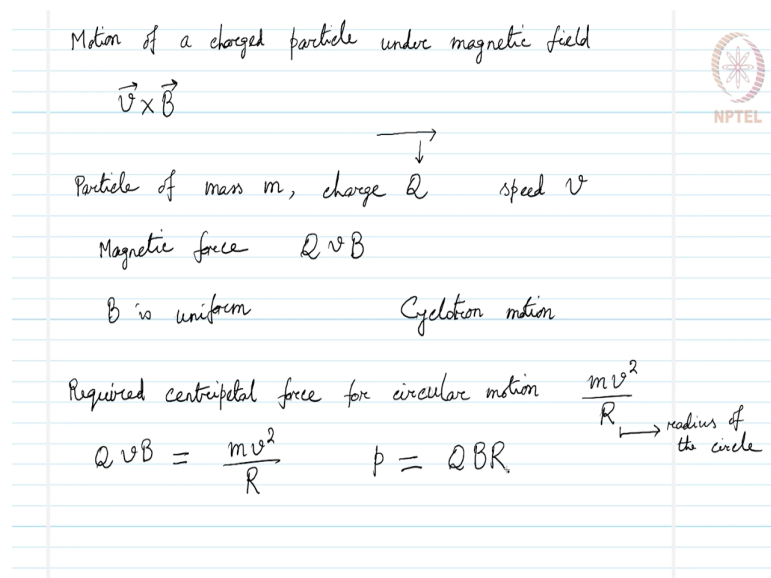 Motion of a charged particle under magnetic field
NPTEL
v⃗ × B⃗
Particle of mass m, charge Q speed v
Magnetic force QvB
B is uniform Cyclotron motion
Required centripetal force for circular motion mv²/R
radius of
the circle
QvB = mv²/R p = QBR